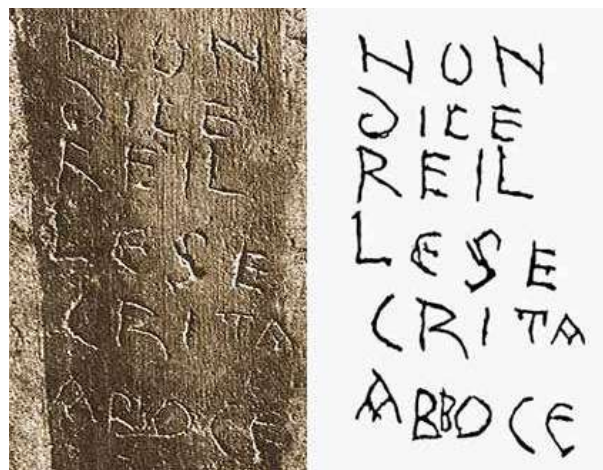 NON
DICE
REIL
LESE
CRITA
ABBOCE
NON
DICE
REIL
LESE
CRITA
ABBOCE